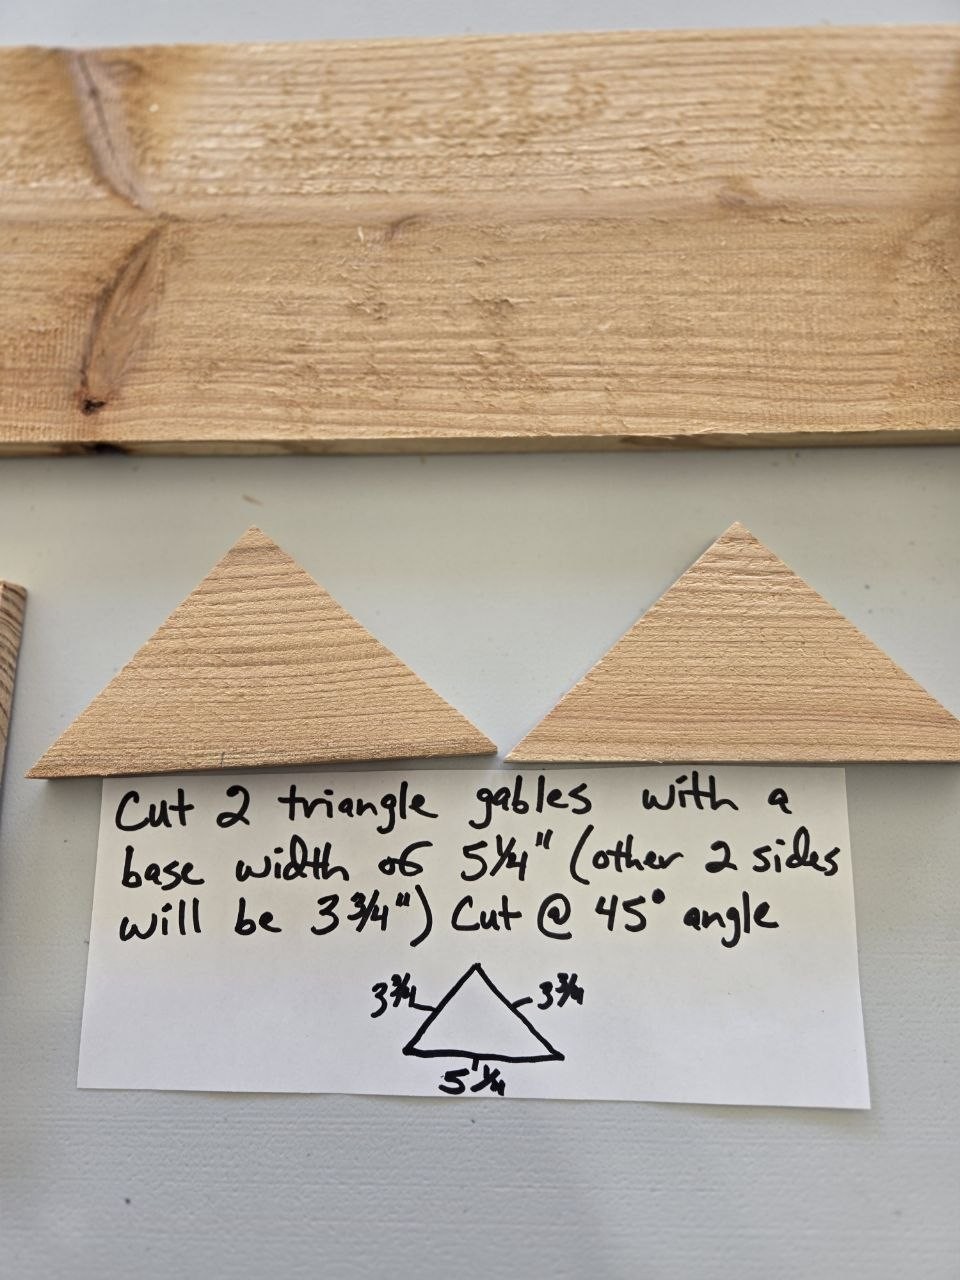 Cut 2 triangle gables with a
base width of 5 1/4" (other 2 sides
will be 3 3/4") Cut @ 45° angle
3 3/4 3 3/4
5 1/4